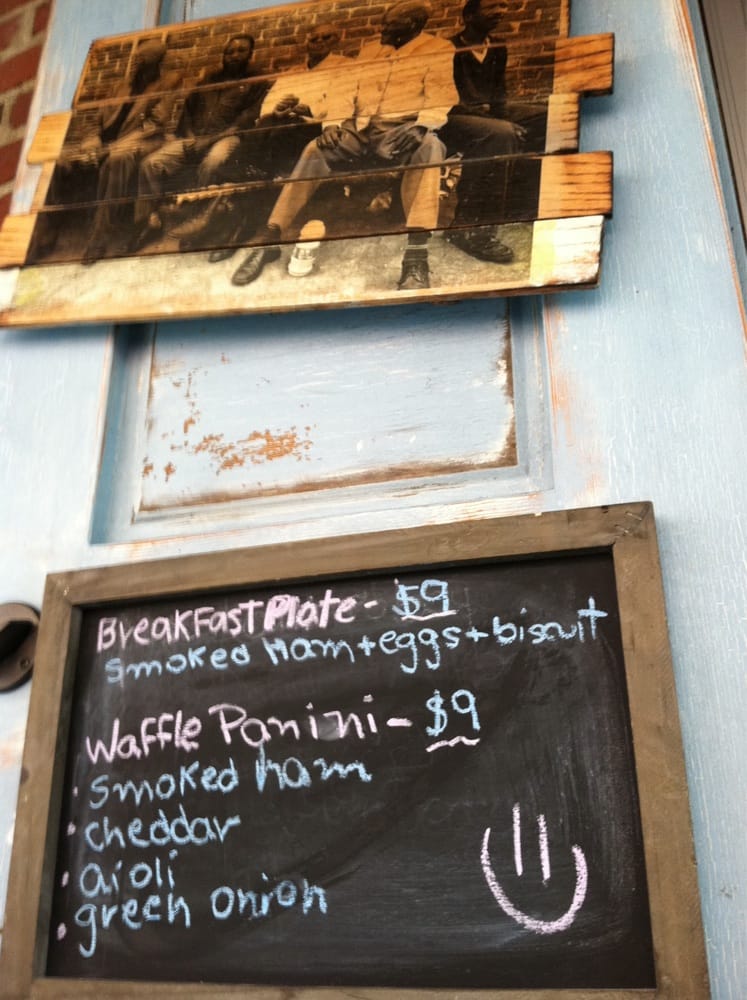 Breakfast Plate - $9
smoked ham + eggs + biscuit
Waffle Panini - $9
· smoked ham
· cheddar
· aioli
· green onion